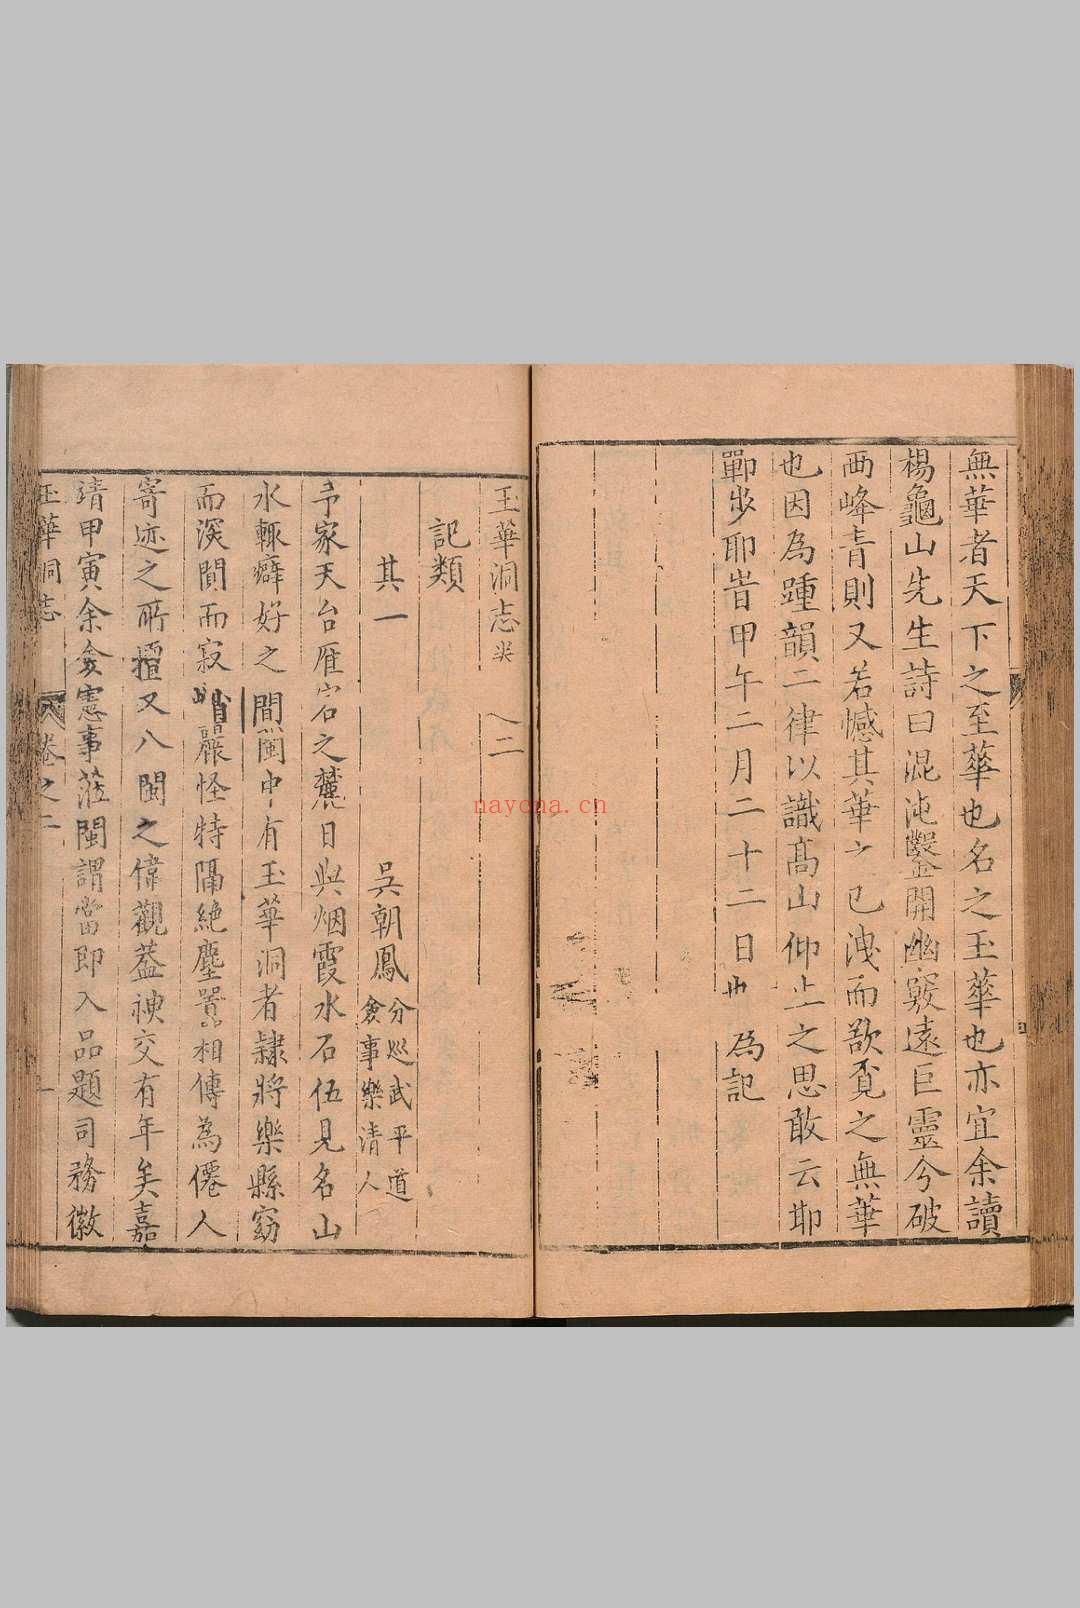 無華者天下之至華也名之玉華也亦宜余讀
楊龜山先生詩曰混沌鑿開幽竅遠巨靈兮破
西峰青則又若憾其華之已洩而歆覔之無華
也因為踵韻二律以識高山仰止之思敢云耶
鄲步耶旹甲午二月二十二日也為記
玉華洞志 二
記類
其一 吳朝鳳 分巡武平道僉事樂清人
予家天台雁宕之麓日與烟霞水石伍見名山
水輒癖好之閒閩中有玉華洞者隷將樂縣窈
而深閴而寂 麗怪特隔絶塵囂 相傳為僊人
寄迹之所擅又八閩之偉觀葢神交有年矣嘉
靖甲寅余僉憲事蒞閩謂當即入品題司務徽
玉華洞志 卷之二 一
nayona.cn